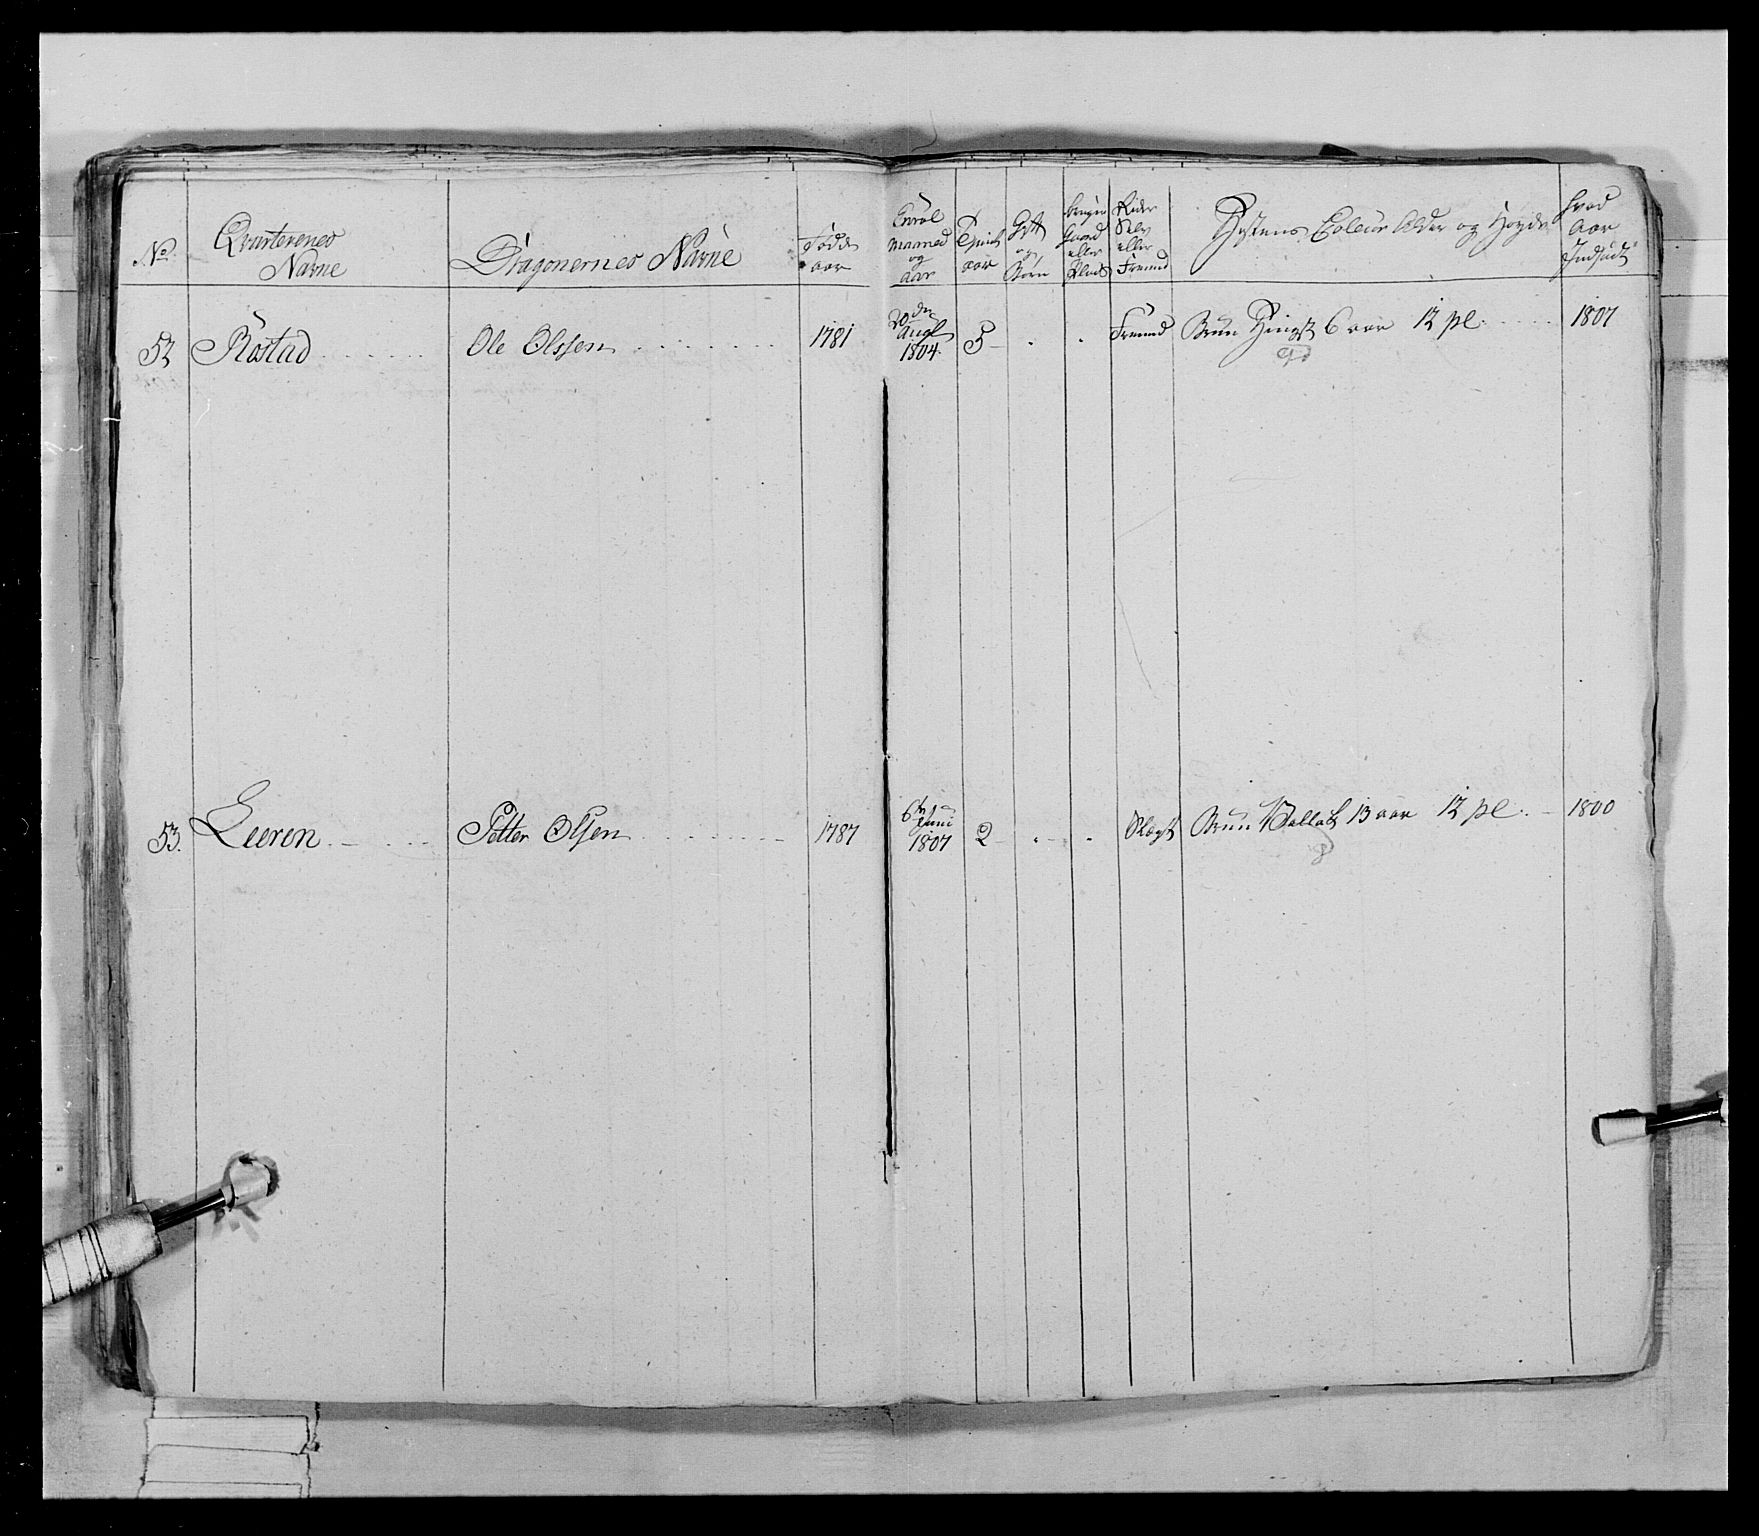 No.
Qvarterenes
Navne
Dragonernes Navne
Fødde
aar
Enrol
Maaned
og
aar
Tjenst
aar
Gift
og
Børn
bruger
Gaard
eller
Plads
Rider
Selv
eller
Fremd
Hestens Coleur Alder og Høyde
hvad
Aar
Indsadt
52 Rostad Ole Olssen 1781 20de Augl 1804. 5 Fremd Brun Hingst 6 aar 12 pl. 1807
53. Leeren Petter Olsen 1787 6te Juni 1807 2 Brun Vallak 13 aar 12 pl. 1800